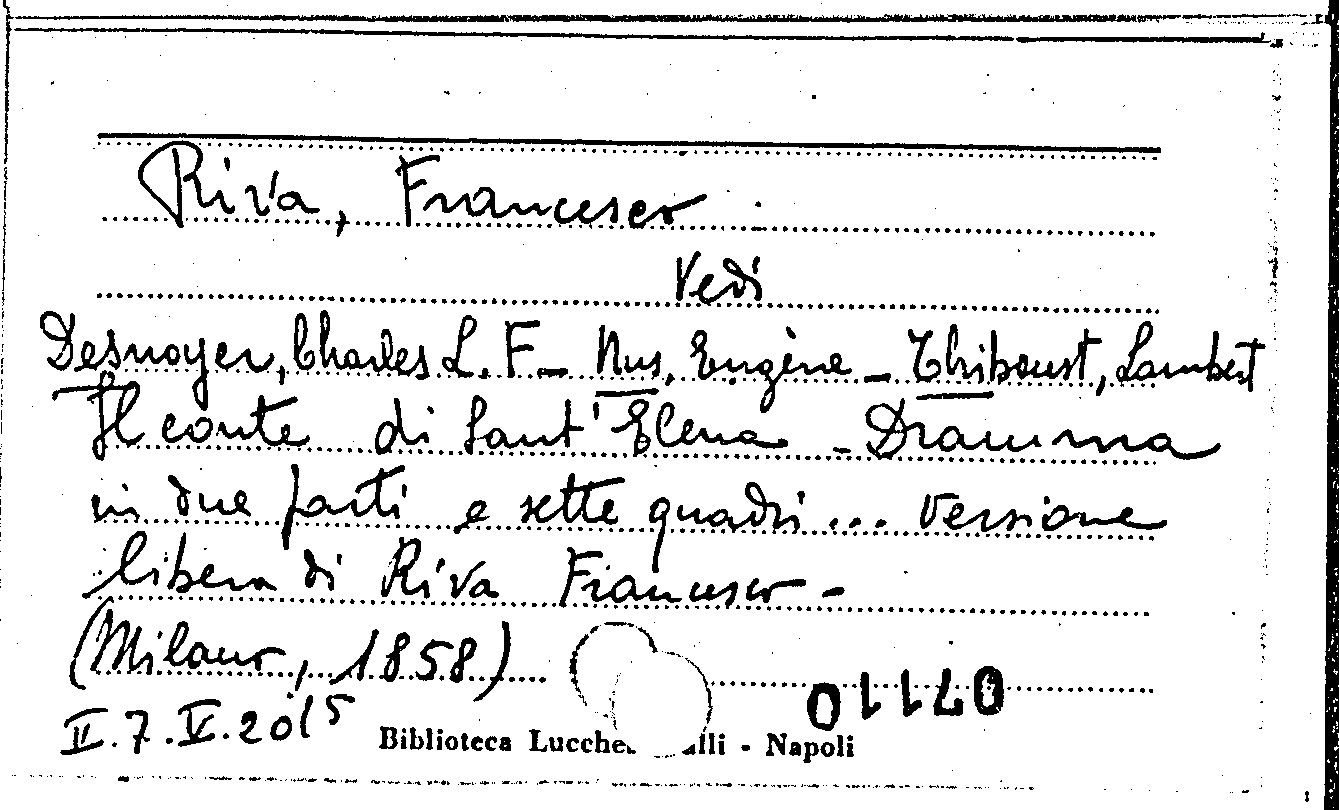 Riva, Francesco
Vedi
Desnoyer, Charles L. F - Nus, Eugène - Thiboust, Lambert
Il conte di Sant'Elena - Dramma
in due parti e sette quadri ... versione
libera di Riva Francesco -
(Milano, 1858)
II.7.V.20(5
01170
Biblioteca Lucche alli - Napoli